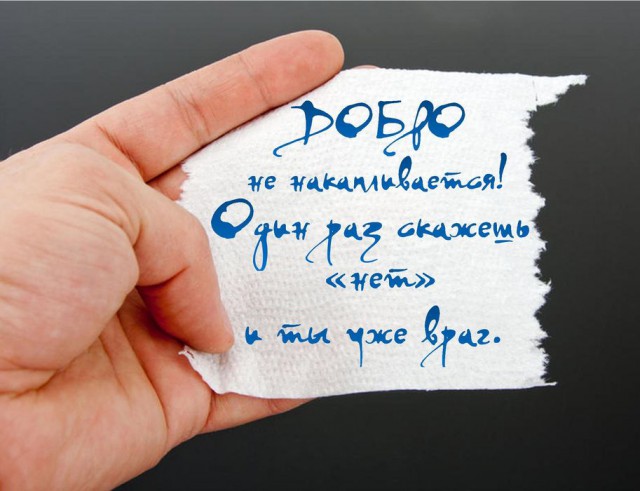 ДОБРО
не накапливается!
Один раз скажешь
«нет»
и ты уже враг.